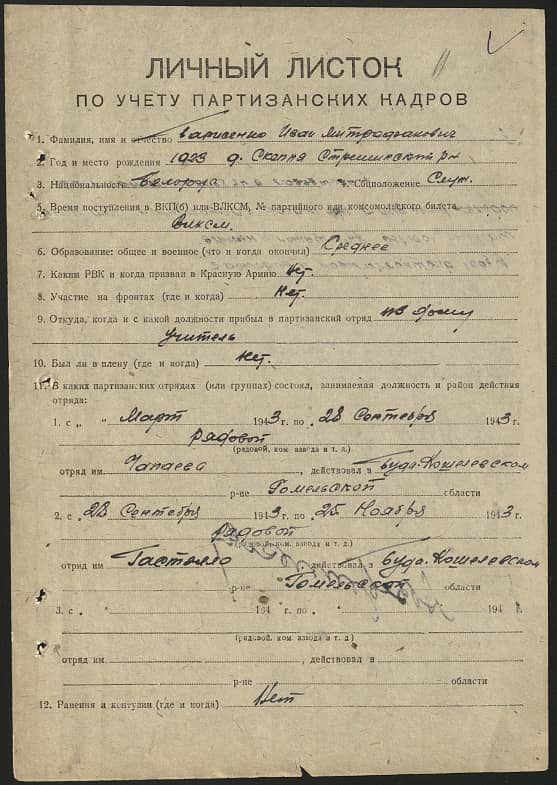 ЛИЧНЫЙ ЛИСТОК
ПО УЧЕТУ ПАРТИЗАНСКИХ КАДРОВ
1. Фамилия, имя и отчество Иван Митрофанович
2. Год и место рождения 1923 д. Скепня Стрешинский р-н
3. Национальность Белорус 4. Соцположение Служ.
5. Время поступления в ВКП(б) или ВЛКСМ, № партийного или комсомольского билета
Влксм.
6. Образование: общее и военное (что и когда окончил) Среднее
7. Каким РВК и когда призван в Красную Армию Нет.
8. Участие на фронтах (где и когда) Нет.
9. Откуда, когда и с какой должности прибыл в партизанский отряд из дому
Учитель
10. Был ли в плену (где и когда) Нет.
11. В каких партизанских отрядах (или группах) состоял, занимаемая должность и район действия
отряда:
1. с „ “ Март 1943 г. по 28 Сентября 1943 г.
Рядовой
(рядовой, ком. взвода и т. д.)
отряд им. Чапаева, действовал в Буда-Кошелевском
р-не Гомельской области
2. с 28 Сентября 1943 г. по 25 Ноября 1943 г.
Рядовой
(рядовой, ком. взвода и т. д.)
отряд им. Гастелло действовал в Буда-Кошелевском
р-не Гомельской области
3. с 194 г. по 194 г.
(рядовой, ком. взвода и т. д.)
отряд им. , действовал в
р-не области
12. Ранения и контузии (где и когда) Нет